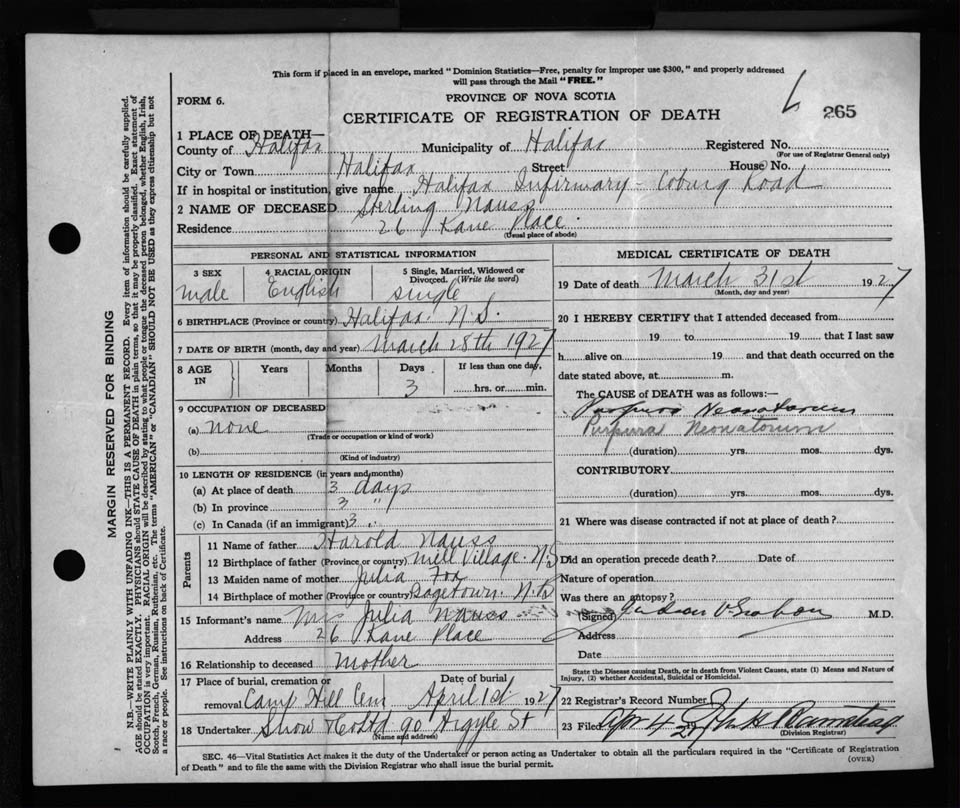 This form if placed in an envelope, marked "Dominion Statistics—Free, penalty for improper use $300," and properly addressed
will pass through the Mail "FREE."
FORM 6.
PROVINCE OF NOVA SCOTIA
CERTIFICATE OF REGISTRATION OF DEATH
265
1 PLACE OF DEATH—
County of Halifax Municipality of Halifax Registered No.
(For use of Registrar General only)
City or Town Halifax Street House No.
If in hospital or institution, give name Halifax Infirmary - Coburg Road
2 NAME OF DECEASED Sterling Nauss
Residence 26 Kane Place
(Usual place of abode)
PERSONAL AND STATISTICAL INFORMATION
3 SEX 4 RACIAL ORIGIN 5 Single, Married, Widowed or
Divorced. (Write the word)
male English single
6 BIRTHPLACE (Province or country) Halifax N.S.
7 DATE OF BIRTH (month, day and year) March 28th 1927
8 AGE IN Years Months Days If less than one day,
3 hrs. or min.
9 OCCUPATION OF DECEASED
(a) none
(Trade or occupation or kind of work)
(b)
(Kind of industry)
10 LENGTH OF RESIDENCE (in years and months)
(a) At place of death 3 days
(b) In province 3 "
(c) In Canada (if an immigrant) 3
Parents
11 Name of father Harold Nauss
12 Birthplace of father (Province or country) Mill Village. N.S
13 Maiden name of mother Julia Fox
14 Birthplace of mother (Province or country) Gagetown. N.B
15 Informant's name Mrs Julia Nauss
Address 26 Kane Place
16 Relationship to deceased Mother
17 Place of burial, cremation or Date of burial
removal Camp Hill Cem April 1st 1927
18 Undertaker Snow & Co Ltd 90 Argyle St
(Name and address)
MEDICAL CERTIFICATE OF DEATH
19 Date of death March 31st 1927
(Month, day and year)
20 I HEREBY CERTIFY that I attended deceased from
19 to 19 that I last saw
h alive on 19 and that death occurred on the
date stated above, at m.
The CAUSE of DEATH was as follows:—
Purpura Neonatorum
Purpura Neonatorum
(duration) yrs. mos. dys.
CONTRIBUTORY
(duration) yrs. mos. dys.
21 Where was disease contracted if not at place of death?
Did an operation precede death? Date of
Nature of operation
Was there an autopsy?
(Signed) M.D.
Address
Date
State the Disease causing Death, or in death from Violent Causes, state (1) Means and Nature of
Injury, (2) whether Accidental, Suicidal or Homicidal.
22 Registrar's Record Number
23 Filed Apr 4 27
(Division Registrar)
SEC. 46—Vital Statistics Act makes it the duty of the Undertaker or person acting as Undertaker to obtain all the particulars required in the "Certificate of Registration
of Death" and to file the same with the Division Registrar who shall issue the burial permit.
(OVER)
MARGIN RESERVED FOR BINDING
N.B.—WRITE PLAINLY WITH UNFADING INK—THIS IS A PERMANENT RECORD. Every item of information should be carefully supplied.
AGE should be stated EXACTLY. PHYSICIANS should STATE CAUSE OF DEATH in plain terms, so that it may be properly classified. Exact statement of
OCCUPATION is very important. RACIAL ORIGIN will be described by stating to what people or tongue the deceased person belonged, whether English, Irish,
Scotch, French, German, Russian, Ruthenian, etc. The terms "AMERICAN" or "CANADIAN" SHOULD NOT BE USED as they express citizenship but not
a race or people. See instructions on back of Certificate.